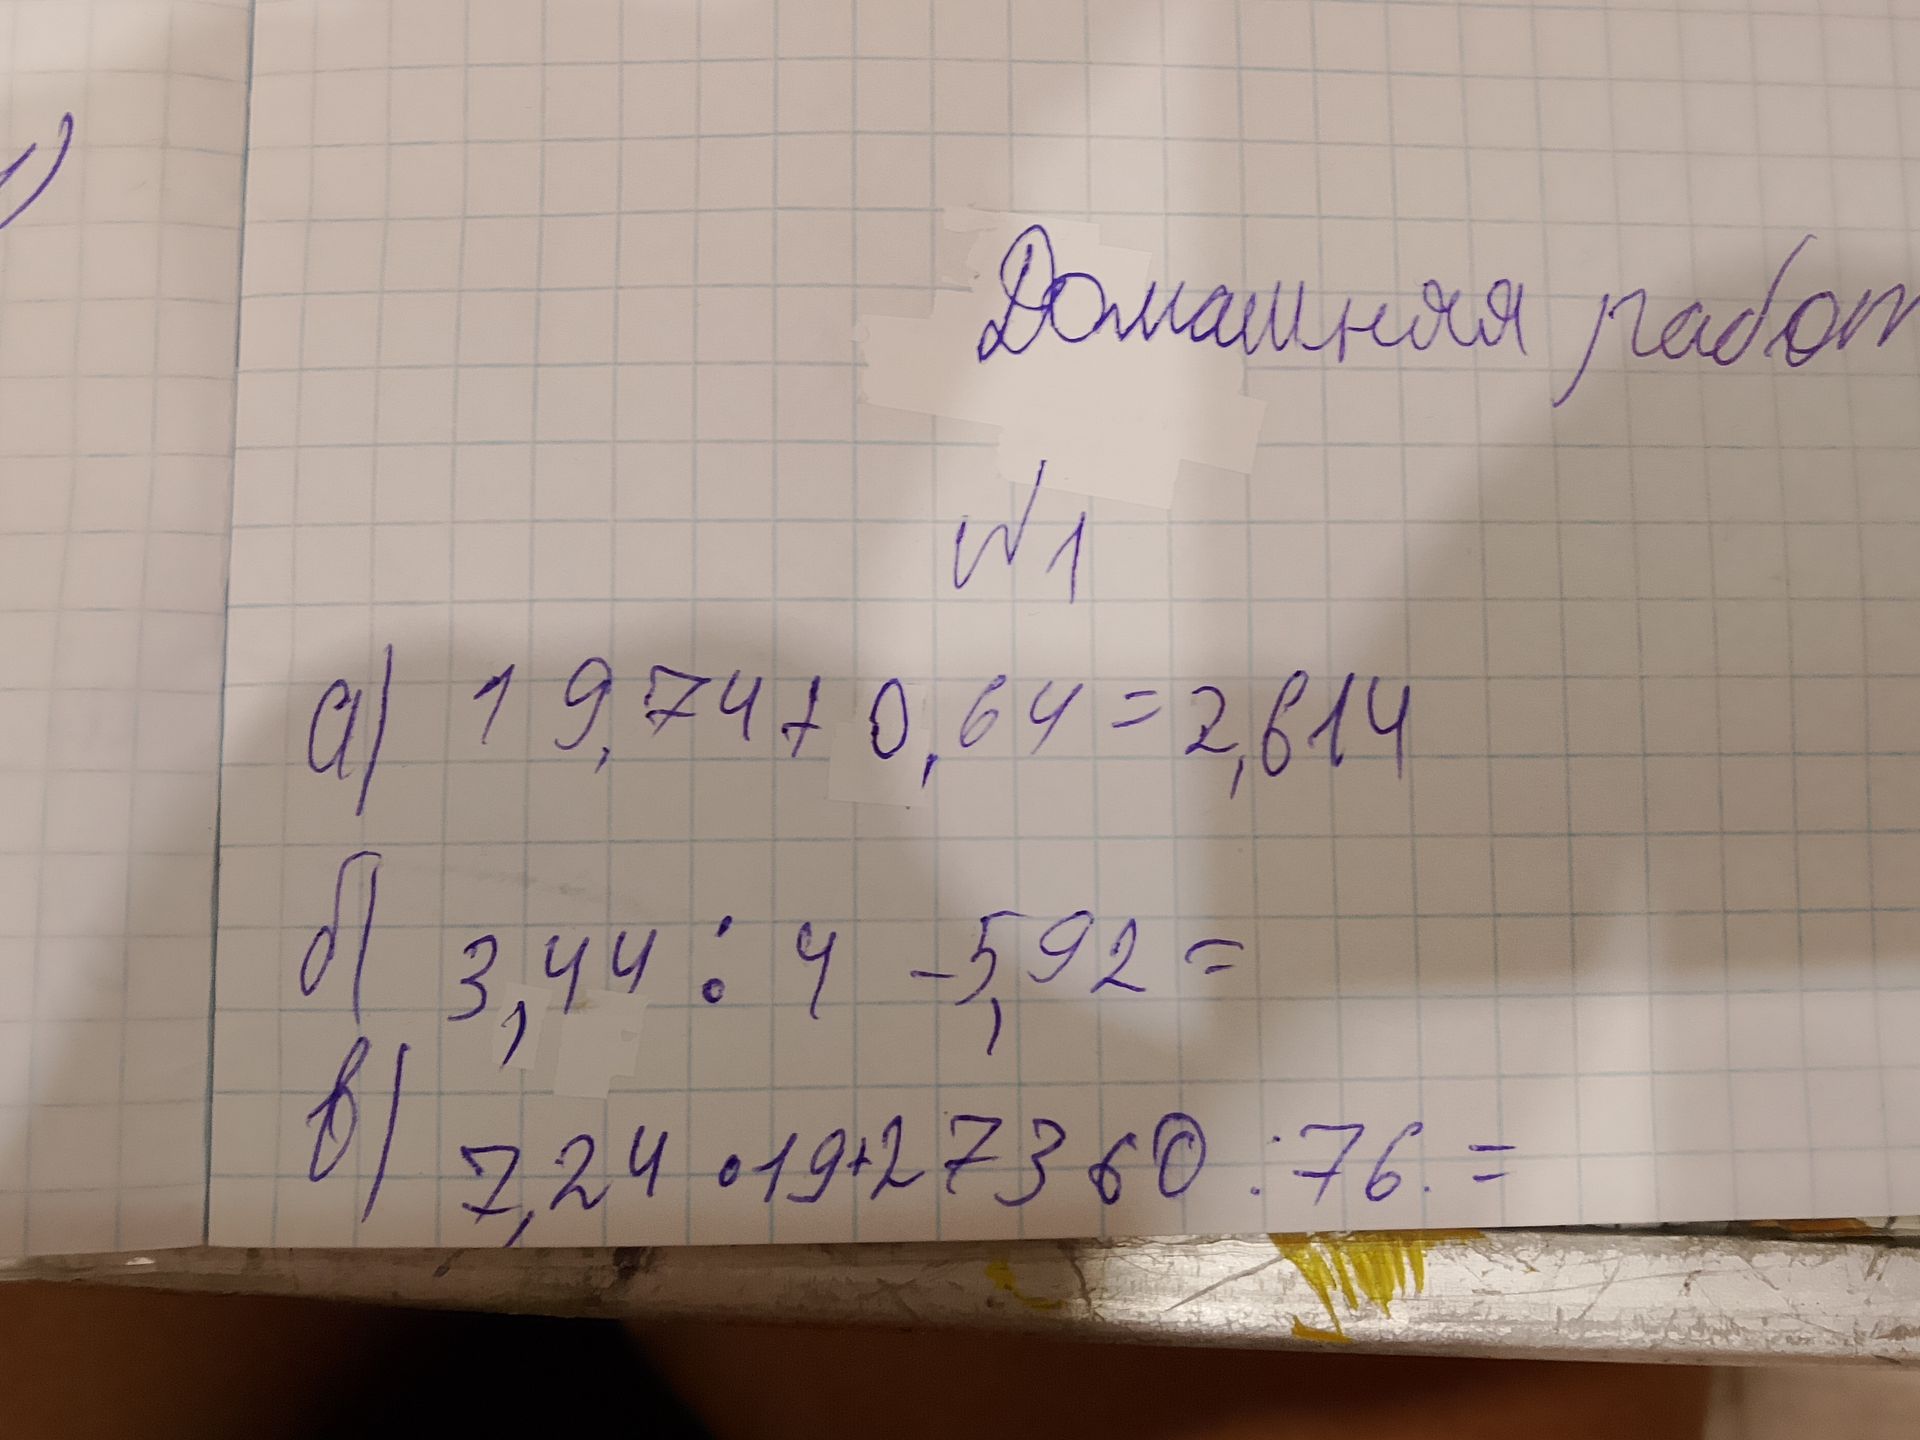 1)
Домашняя работ
№1
а) 19,74+0,64=2,614
б) 3,44 : 4 -5,92=
в) 7,24 •19+27360 :76.=